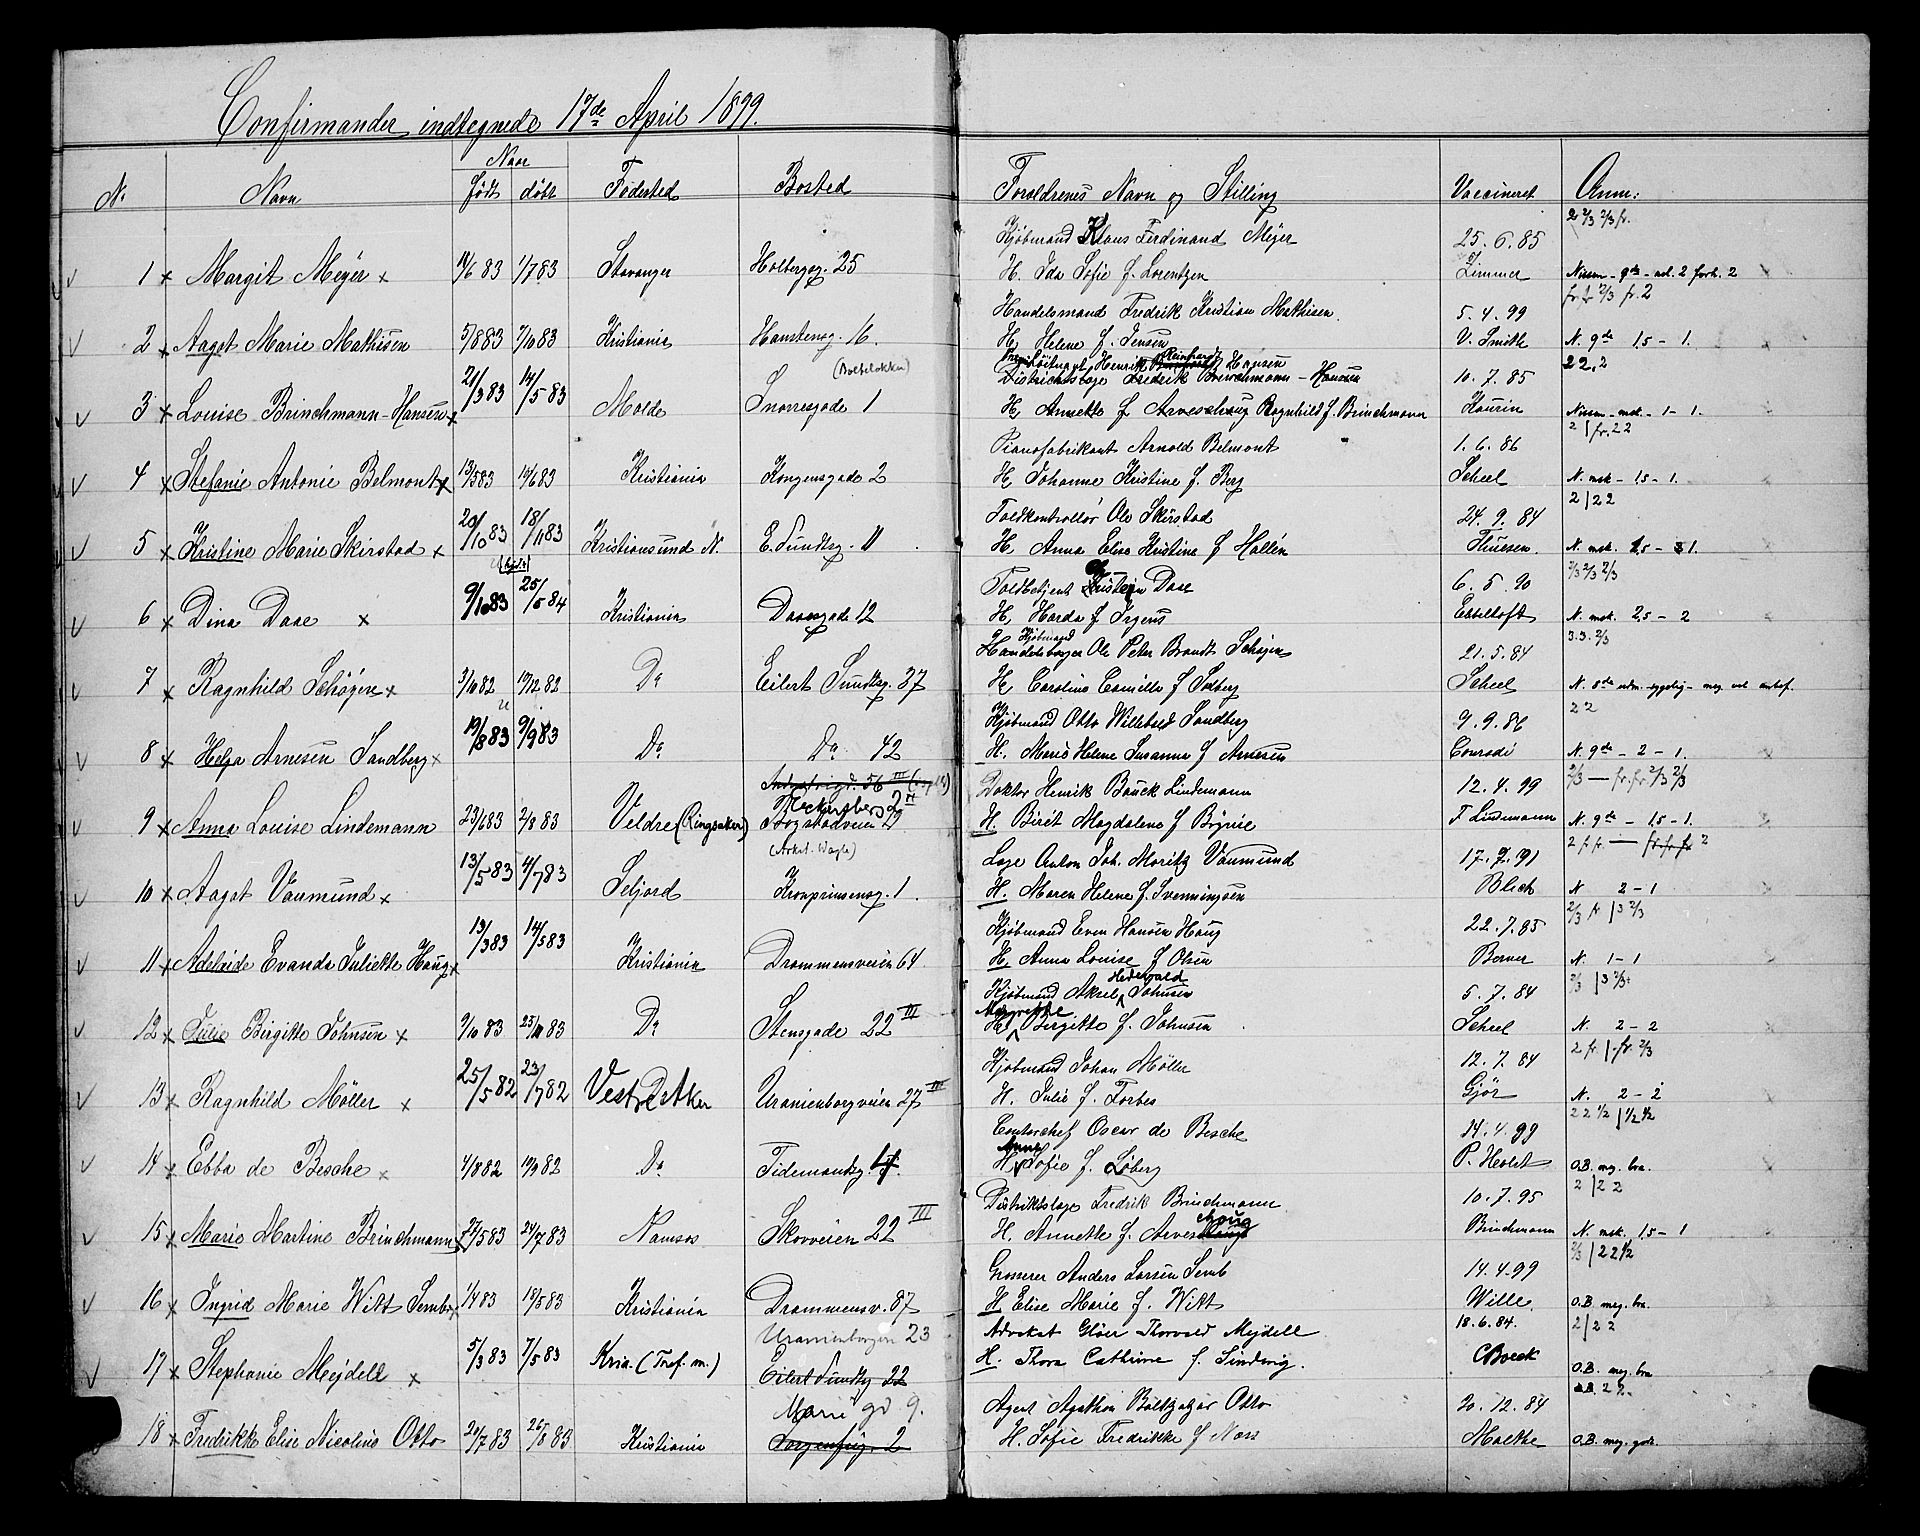 Confirmander indtegnede 17de April 1899.
No Navn Naar født døbt Fødested Bosted
Forældrenes Navn og Stilling Vaccineret Anm:
Kjøbmand Klaus Ferdinand Meyer 25.6.85 2 2/3 2/3 fr.
1 x Margit Meyer x /6 83 1/7 83 Stavanger Holbergsg. 25
H. Ida Sofie f. Lorentzen Zimmer Nissen - 9de - adl. 2 forh. 2
Handelsmand Fredrik Kristian Mathisen 5.4.99 fr. 2/3 fr. 2
2 x Aagot Marie Mathisen 5/8 83 7/10 83 Kristiania Hanstensg. 16.
H. Helene f. Jensen V. Smith N. 9de 1,5 - 1.
(Balteløkken)
Henrik Reinhardt Hansen
Distriktslæge Fredrik Brinchmann - Hansen 10.7.85 22,2
3 x Louise Brinchmann-Hansen x 21/3 83 14/5 83 Molde Snorresgade 1
H. Annette f. Arveschaug Ragnhild f. Brinchmann Kaurin Nissen - msk. - 1 - 1.
Pianofabrikant Arnold Belmont 1.6.86 2 | fr. 22
4 x Stefanie Antonie Belmont x 13/5 83 19/6 83 Kristiania Kongensgade 2
H. Johanne Kristine f. Berg Scheel N. msk - 1,5 - 1.
Toldkontrollør Ole Skirstad 24.9.84 2 | 22
5 x Kristine Marie Skirstad x 20/10 83 18/11 83 Kristiansund N. E. Sundtsg. 11
H. Anna Elise Kristine f. Hallén Thuesen N. msk. 1,5 - 1.
Toldbetjent Daae 6.5.90 2/3 2/3 2/3
6 x Dina Daae x 9/10 83 25/5 84 Kristiania Daasgade 12
H. Harda f. Irgens Ebbeltoft N. msk. 2,5 - 2
Kjøbmand
Handelsborger Ole Peter Brandt Schøgen 21.5.84 3.3. 2/3
7 x Ragnhild Schøgen x 3/10 82 19/12 82 Do Eilert Sundtsg. 37
H. Caroline Camilla f. Solberg Scheel N. 8de adm. sygelig - meg. vel anbef.
Kjøbmand Otto Willebrd Sandberg 9.9.86 22
8 x Helga Arnesen Sandberg x 19/8 83 9/9 83 Do Do 42
H. Marie Helene Susanne f. Arnesen Conradi N. 9de - 2 - 1.
Industrigd. 56 III
Doktor Henrik Bauck Lindemann 12.4.99 2/3 — fr. fr. 2/3 2/3
9 x Anna Louise Lindemann 23/6 83 2/8 83 Veldre (Ringsaker) Bogstadveien 29
H. Birét Magdalene f. Brynie F Lindemann N. 9de - 1,5 - 1.
(Arkit. Wagle)
Læge Anton Joh. Moritz Vaumund 17.7.91 2 fr. fr. — fr. fr. fr. 2
10 x Aagot Vaumund x 13/5 83 4/7 83 Seljord Kronprinsensg. 1.
H. Maren Helene f. Svenningsen Blich N 2 - 1
Kjøbmand Even Hansen Haug 22.7.85 2/3 fr. | 3 2/3
11 x Adelaide Evanda Juliette Haug x 13/3 83 14/5 83 Kristiania Drammensveien 64
H. Anna Louise f. Olsen Berner N. 1 - 1
Kjøbmand Aksel Hedevald Johnsen 5.7.84 2/3 | 3 2/3
12 x Julie Birgitte Johnsen x 9/10 83 25/11 83 Do Stensgade 22 III
H. Margrethe Birgitte f. Johnsen Scheel N. 2 - 2
Kjøbmand Johan Møller 12.7.84 2 fr. | fr. 2/3
13 x Ragnhild Møller x 25/5 82 23/7 82 Vestre Aker Uranienborgveien 27 III
H. Julie f. Forbes Gjør N. 2 - 2
Contorchef Oscar de Besche 14.4.99 22 1/2 | 1/2 1/2
14 x Ebba de Besche x 4/8 82 19/9 82 Do Tidemandsg. 4.
H. Anna Sofie f. Løberg P. Holst O.B. meg. bra.
Distriktslæge Fredrik Brinchmann 10.7.95 2 | 22
15 x Marie Martine Brinchmann x 27/5 83 24/7 83 Namsos Skovveien 22 III
H. Annette f. Arveschaug Brinchmann N. msk. 1,5 - 1
Grosserer Anders Larsen Semb 14.4.99 2/3 | 22 1/2
16 x Ingrid Marie Witt Semb x 1/4 83 18/5 83 Kristiania Drammensv. 87
H. Elise Marie f. Witt Wille O.B. meg. bra.
Uranienborgvn 23
Advokat Gløer Thorvald Mejdell 18.6.84. 2 | 22
17 x Stephanie Mejdell x 5/3 83 7/5 83 Kria. (Tref. m.) Eilert Sundtsg 22
H. Thora Cathrine f. Sindwig. CBoeck O.B. meg. bra
Marie gd 9.
Agent Agathon Balthazar Otto 20.12.84 22.
18 x Fredrikke Elise Nicoline Otto 20/7 83 26/8 83 Kristiania Sorgenfrig. 2
H. Sofie Fredrikke f Næss Malthe O.B. meg. godt.